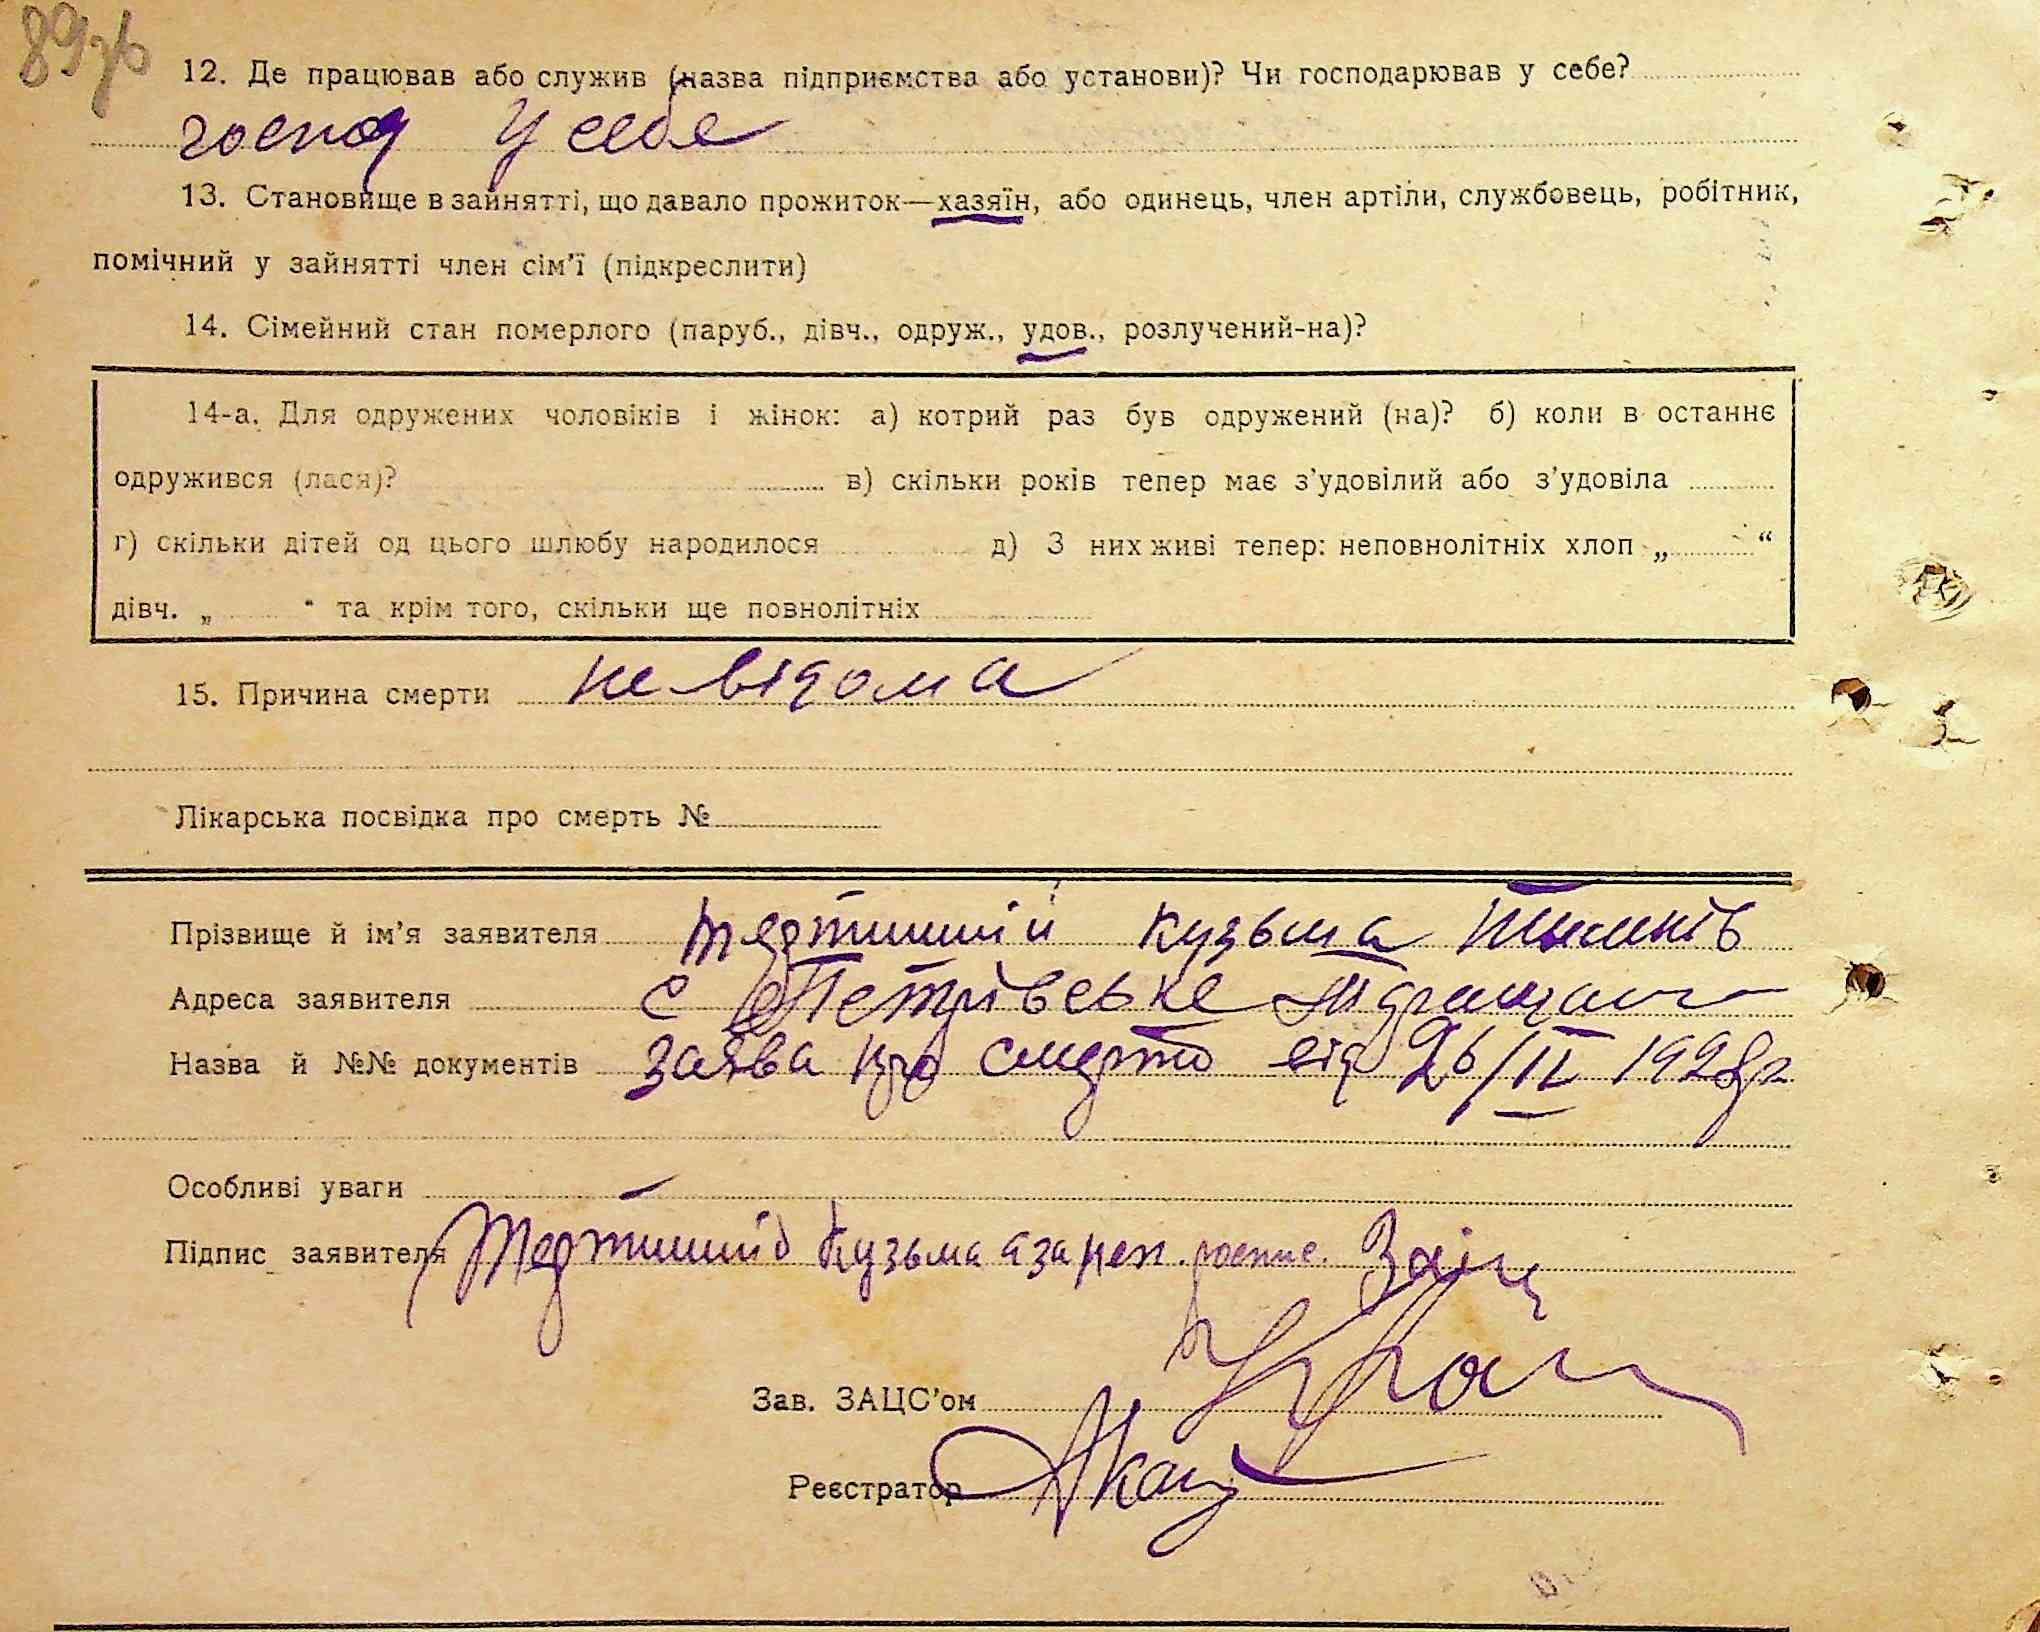 89зв
12. Де працював або служив (назва підприємства або установи)? Чи господарював у себе?
господ у себе
13. Становище в зайнятті, що давало прожиток—хазяїн, або одинець, член артіли, службовець, робітник,
помічний у зайнятті член сім'ї (підкреслити)
14. Сімейний стан померлого (паруб., дівч., одруж., удов., розлучений-на)?
14-а. Для одружених чоловіків і жінок: а) котрий раз був одружений (на)? б) коли в останнє
одружився (лася)? в) скільки років тепер має з'удовілий або з'удовіла
г) скільки дітей од цього шлюбу народилося д) З них живі тепер: неповнолітніх хлоп „ “
дівч. „ “ та крім того, скільки ще повнолітніх
15. Причина смерти невідома
Лікарська посвідка про смерть №
Прізвище й ім'я заявителя Кузьма
Адреса заявителя с Петрівське
Назва й №№ документів заява про смерть від 26/II 1928р
Особливі уваги –
Підпис заявителя Кузьма а за неп. роспис. Заїц
Зав. ЗАЦС'ом
Реєстратор